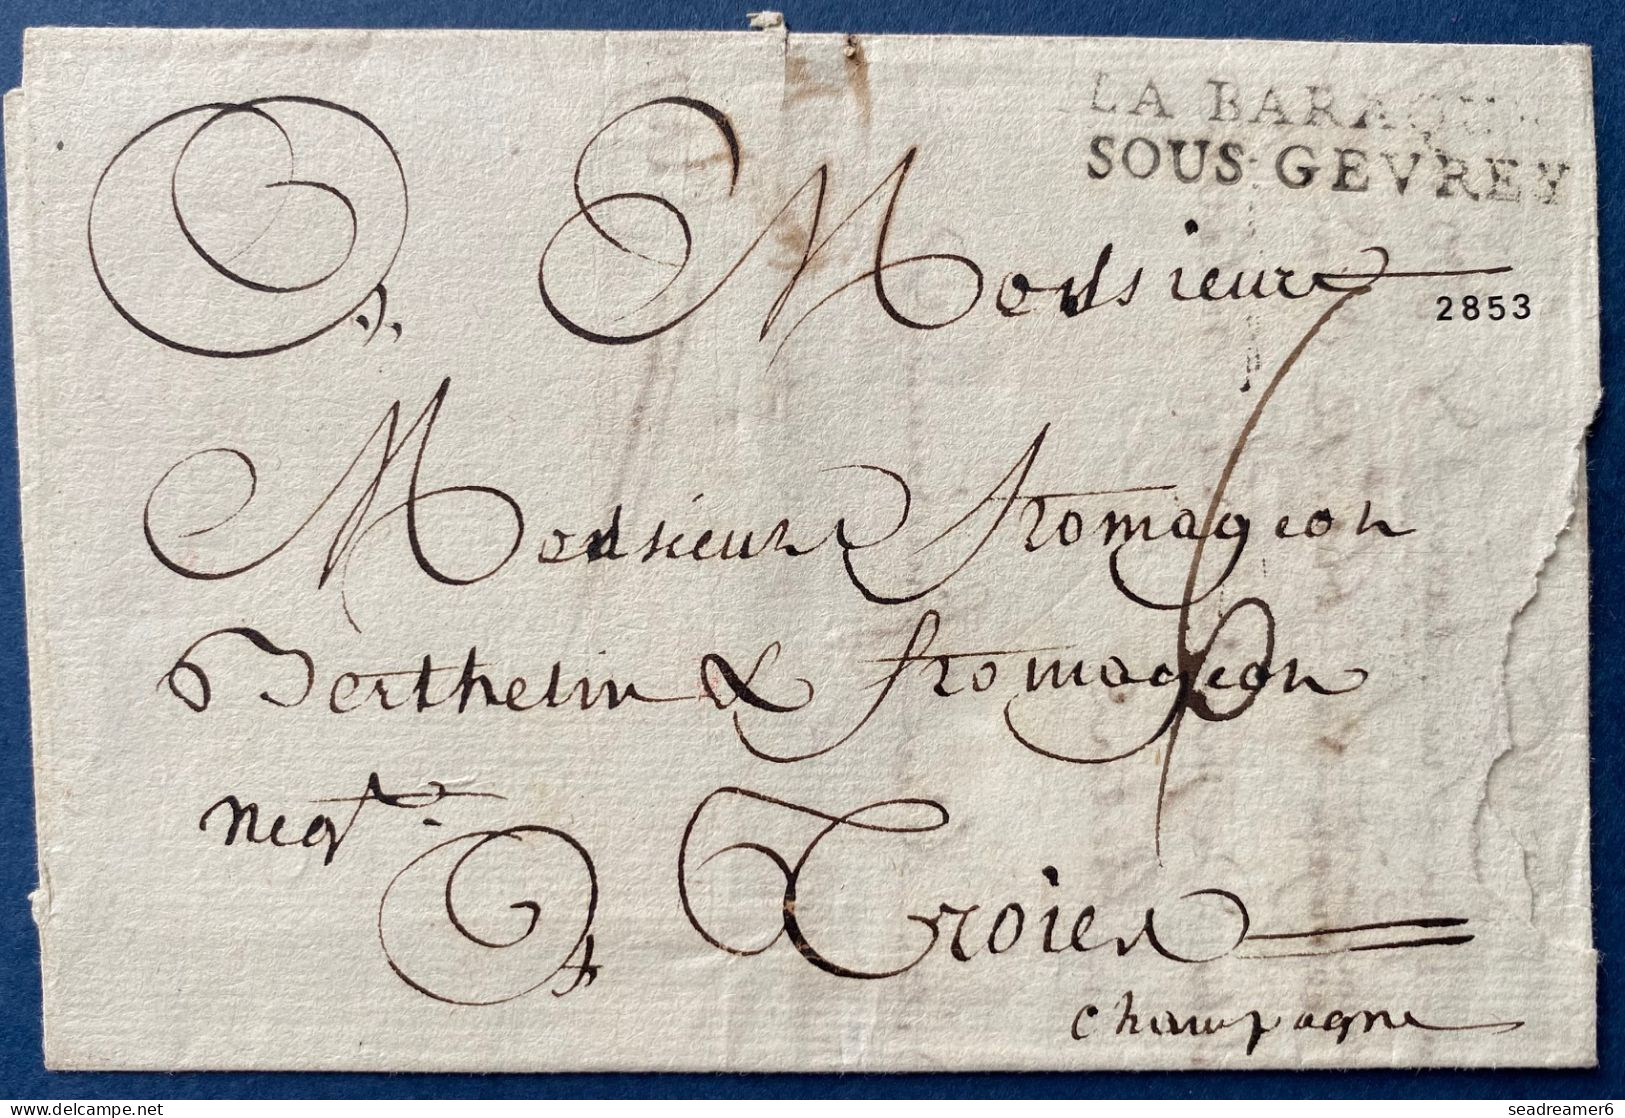 LA BARAQUE
SOUS GEVREY
A Monsieur
2853
Monsieur fromageon
Berthelin & fromageon
Negt.
A Troies
champagne
delcampe.net
seadreamer6